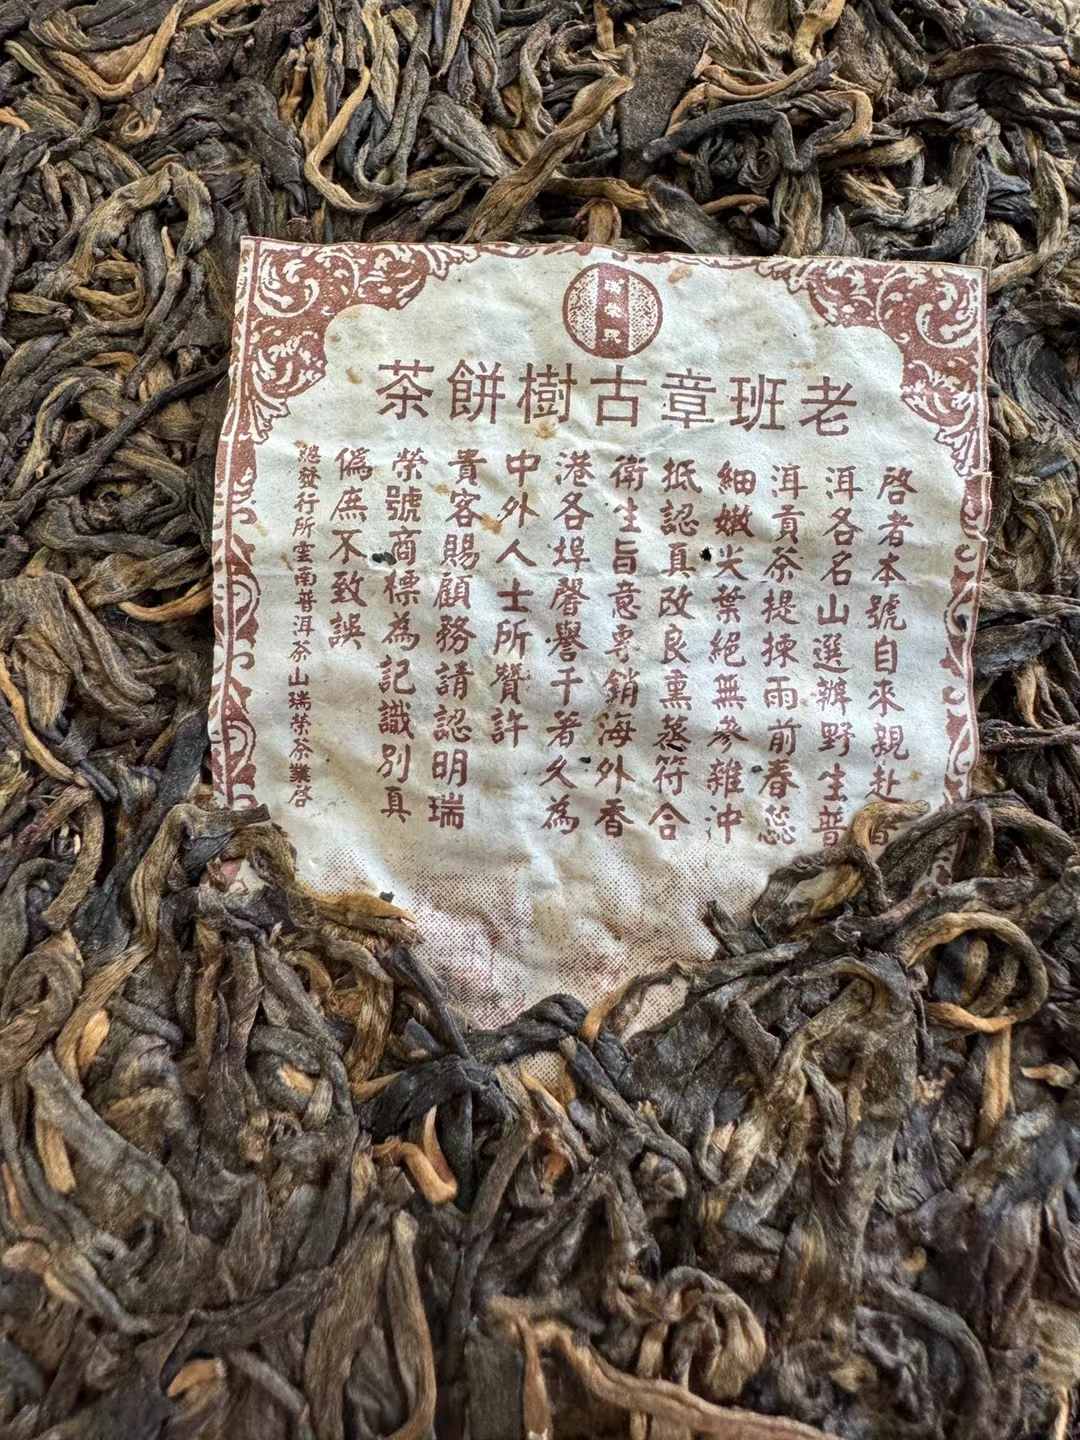 老班章古樹餅茶
啓者本號自來親赴普
洱各名山選辦野生普
洱貢茶提揀雨前春蕊
細嫩尖葉絕無參雜沖
抵認真改良熏蒸符合
衛生旨意專銷海外香
港各埠馨譽千著久為
中外人士所贊許
貴客賜顧務請認明瑞
榮號商標為記識別真
偽庶不致誤
總發行所雲南普洱茶山瑞荣茶業啓